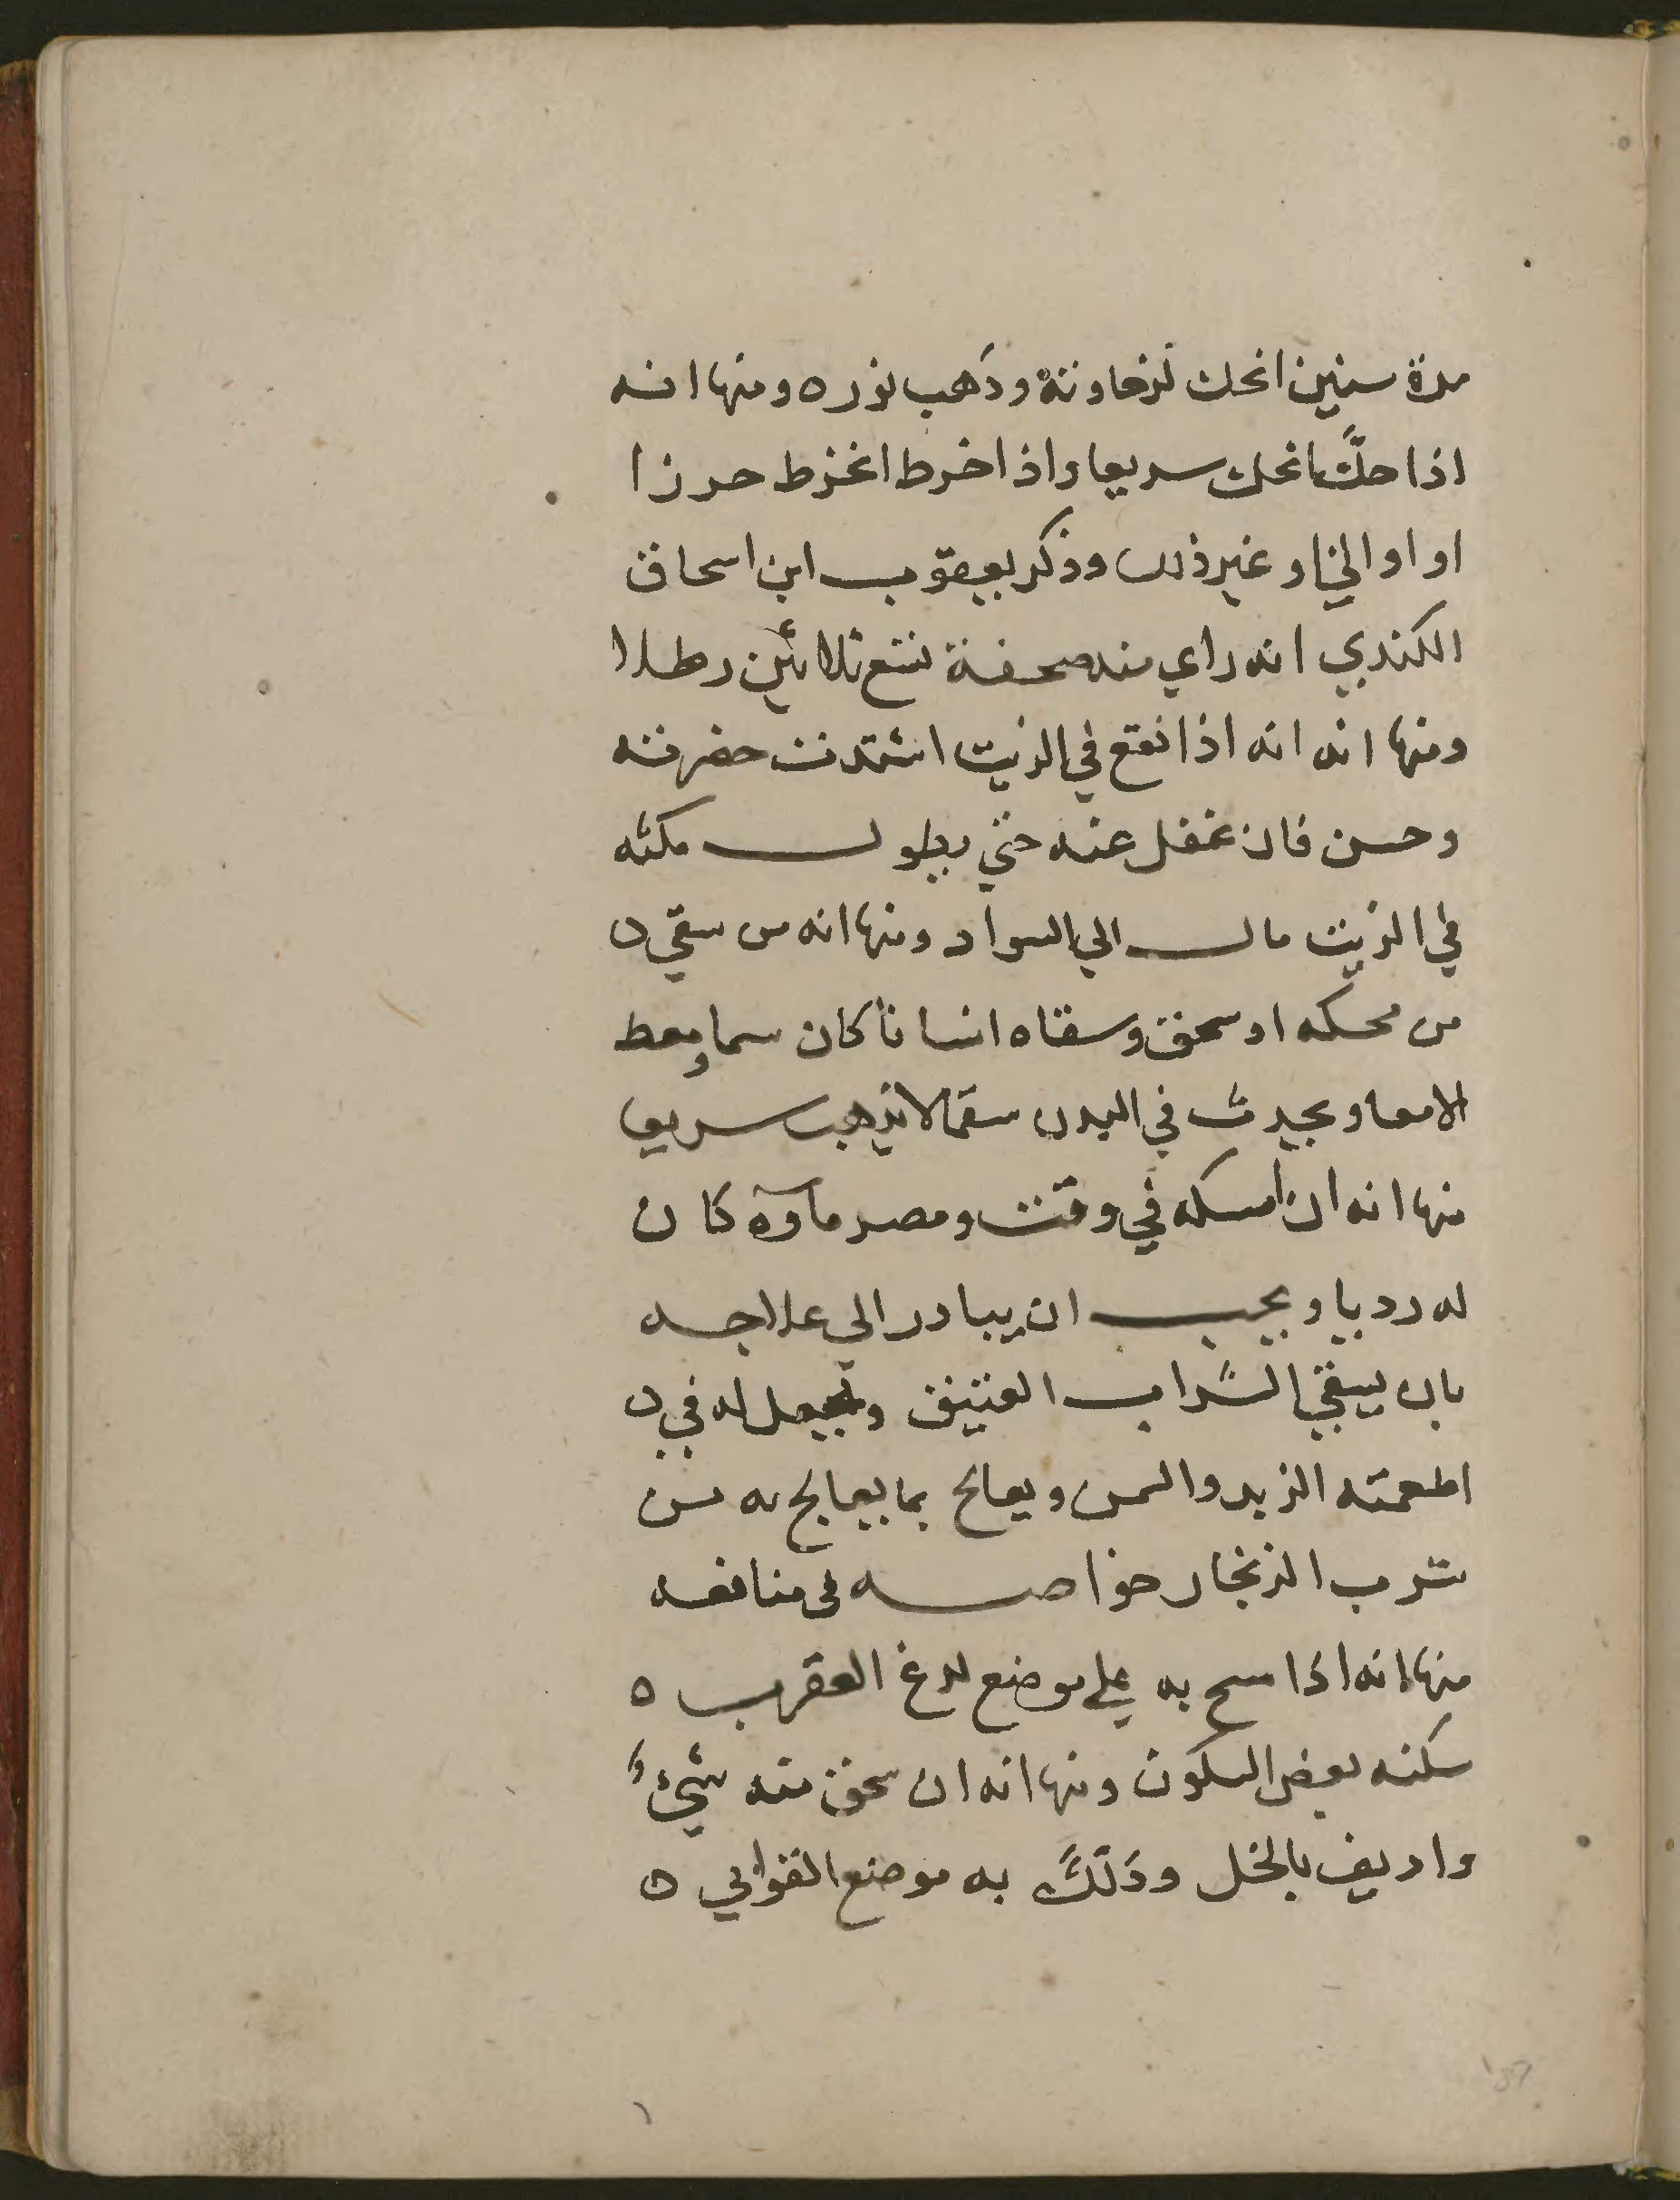 مدة سنين انحك لرخاوتة وذهب نوره ومنها انه
اذا حكّ انحك سريعا واذا خرط انخرط حرزا
او اواني او غير ذلك وذكر يعقوب ابن اسحاق
الكندي انه راي منه صحفة تتسع ثلاثين رطلا
ومنها انه انه اذا نقع في الزيت اشتدت حضرته
وحسن فان غفل عنه حتي يطول مكثه
في الزيت مال الي السواد ومنها انه من سقي
من محكه او سحق وسقاه انسانا كان سما ومعط
الامعا ويحدث في البدن سقما لا يذهب سريعا
منها انه ان امسكه في وقت ومصر ماؤه كان
له رديا ويجب ان يبادر الي علاجه
بان يسقي الشراب العتيق ويجعل له في
اطعمته الزبد والسمن ويعالج بما يعالج به من
شرب الزنجار خواصه في منافعه
منها انه اذا مسح به علي موضع لدغ العقرب ه
سكنه بعض السكون ومنها انه ان سحق منه شيءٌ
واديف بالخل ودَلَكَ به موضع القوابي ه